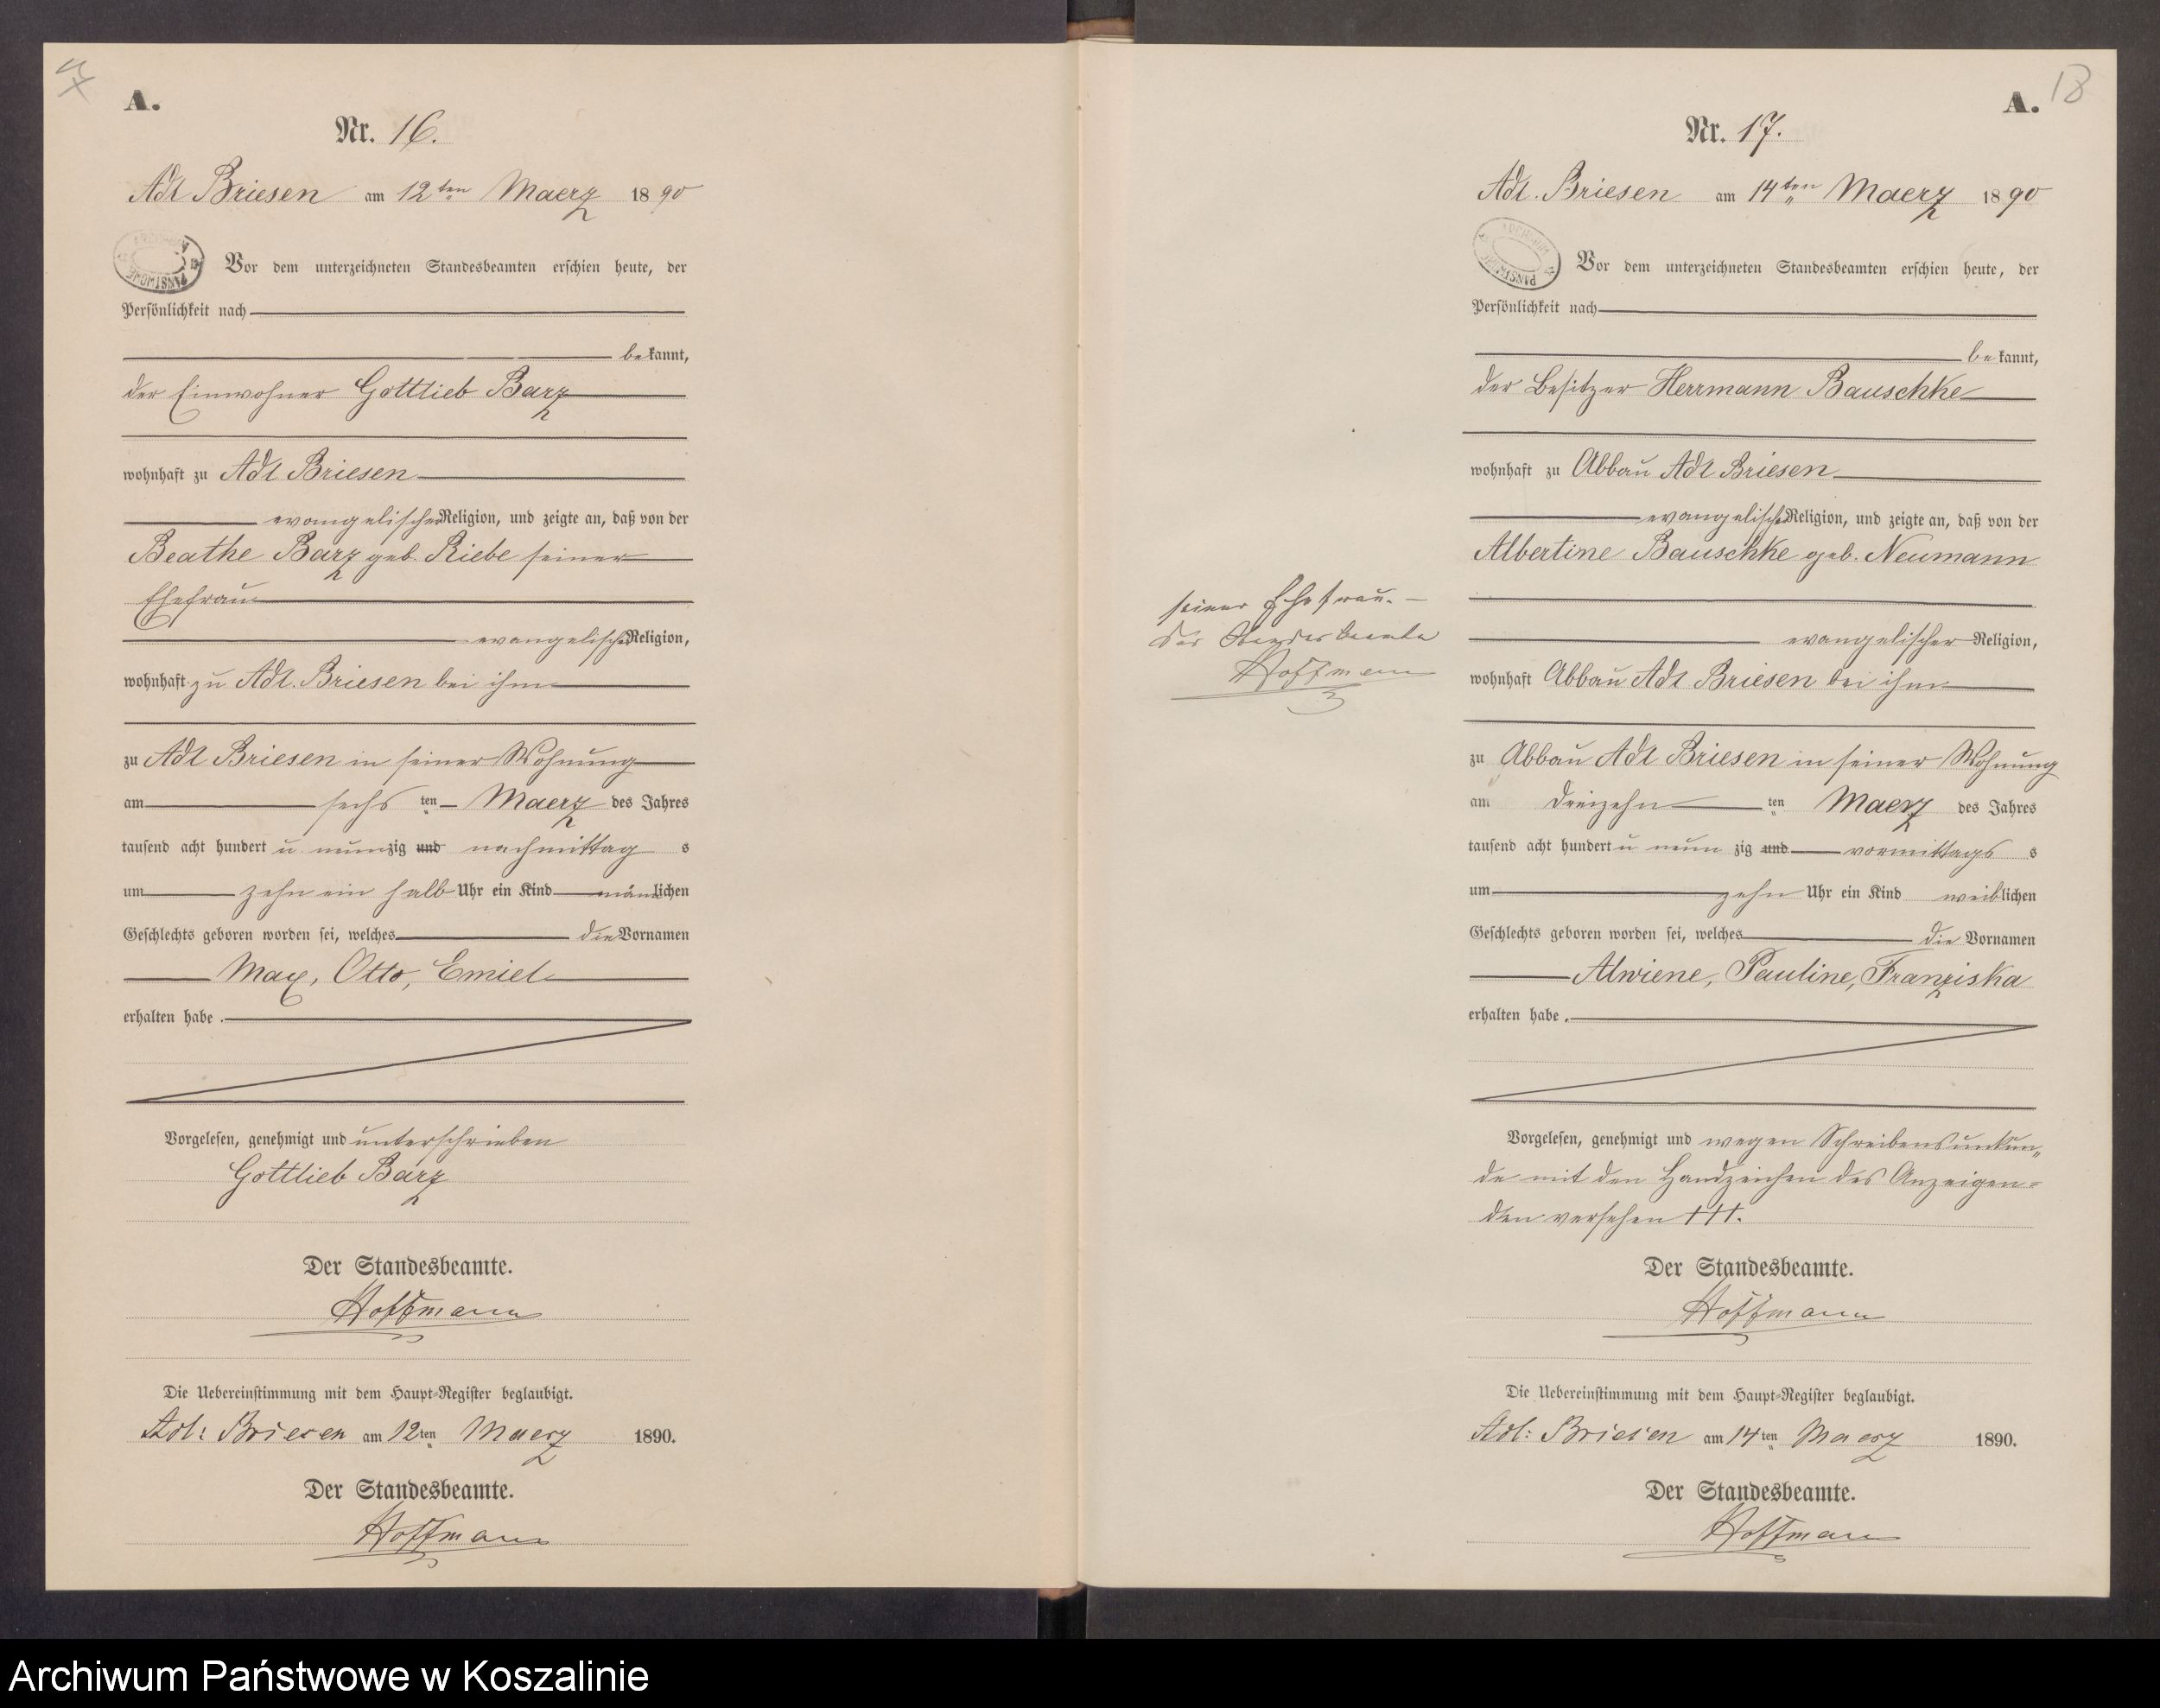 A.
Nr. 16.
Adl Briesen am 12ten Maerz 1890
Vor dem unterzeichneten Standesbeamten erschien heute, der
Persönlichkeit nach
bekannt,
der Einwohner Gottlieb Barz
wohnhaft zu Adl Briesen
evangelischer Religion, und zeigte an, daß von der
Beathe Barz geb. Riebe seiner
Ehefrau
evangelischer Religion,
wohnhaft zu Adl. Briesen bei ihm
zu Adl Briesen in seiner Wohnung
am sechs ten Maerz des Jahres
tausend acht hundert u neunzig und nachmittag s
um zehn ein halb Uhr ein Kind männlichen
Geschlechts geboren worden sei, welches die Vornamen
Max, Otto, Emiel
erhalten habe.
Vorgelesen, genehmigt und unterschrieben
Gottlieb Barz
Der Standesbeamte.
Hoffmann
Die Uebereinstimmung mit dem Haupt-Register beglaubigt.
Adl: Briesen am 12ten Maerz 1890.
Der Standesbeamte.
Hoffmann
A. 18
Nr. 17.
Adl. Briesen am 14ten Maerz 1890
Vor dem unterzeichneten Standesbeamten erschien heute, der
Persönlichkeit nach
bekannt,
der Besitzer Herrmann Bauschke
wohnhaft zu Abbau Adl Briesen
evangelischer Religion, und zeigte an, daß von der
Albertine Bauschke geb. Neumann
seiner Ehefrau.
Der Standesbeamte
Hoffmann
evangelischer Religion,
wohnhaft Abbau Adl Briesen bei ihm
zu Abbau Adl Briesen in seiner Wohnung
am dreizehn ten Maerz des Jahres
tausend acht hundert u neun zig und vormittags s
um zehn Uhr ein Kind weiblichen
Geschlechts geboren worden sei, welches die Vornamen
Alwiene, Pauline, Franziska
erhalten habe.
Vorgelesen, genehmigt und wegen Schreibensunkun„
de mit den Handzeichen des Anzeigen=
den versehen †††.
Der Standesbeamte.
Hoffmann
Die Uebereinstimmung mit dem Haupt-Register beglaubigt.
Adl: Briesen am 14ten Maerz 1890.
Der Standesbeamte.
Hoffmann
Archiwum Państwowe w Koszalinie